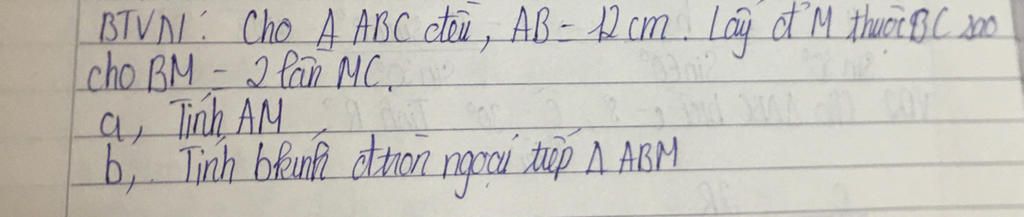 BTVN: Cho Δ ABC đều, AB = 12 cm. Lấy đ' M thuộc BC sao
cho BM = 2 lần MC.
a, Tính AM
b, Tính bkính đtròn ngoại tiếp Δ ABM